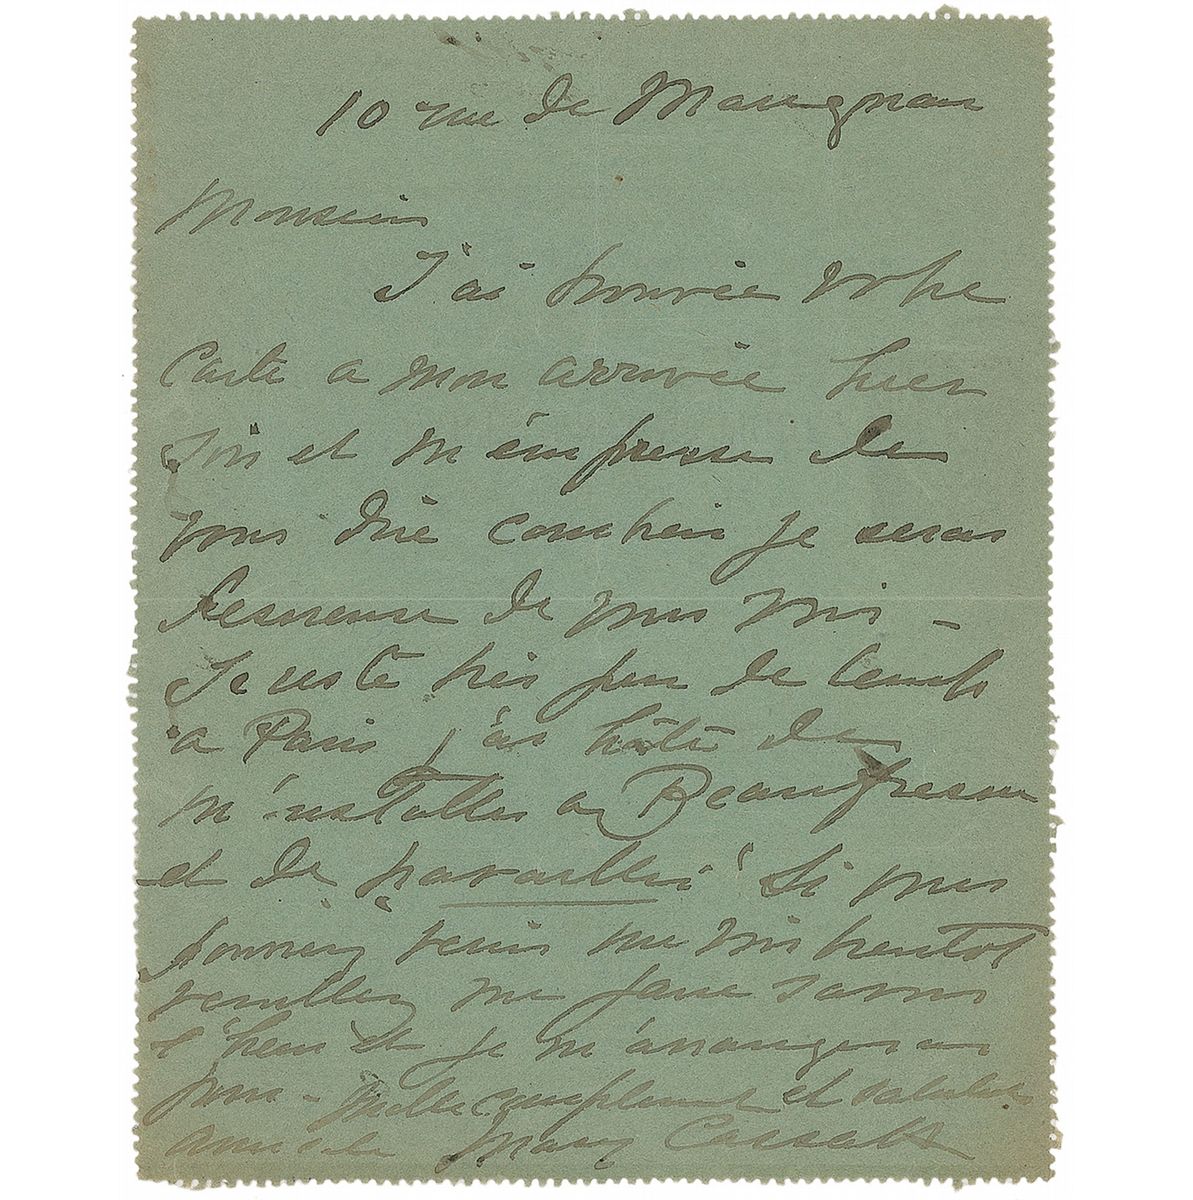 10 rue de Marignan
Monsieur
J'ai trouvée votre
carte a mon arrivée hier
soir et m'empresse de
vous dire combien je serais
heureuse de vous voir –
Je reste très peu de temps
a Paris j'ai hâte de
m'installer a Beaufresne
et de travailler Si vous
pouvez venir me voir bientot
veuillez me faire savoir
l'heure et je m'arrangerai
pour – Mille compliments et
amicale Mary Cassatt